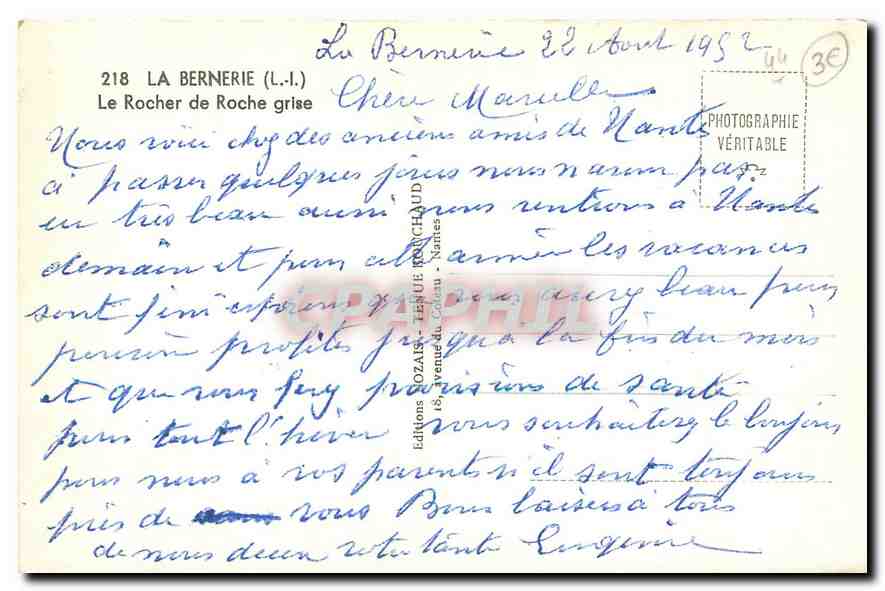 La Bernerie 22 Aout 1952
44
3€
218 LA BERNERIE (L.-I.)
Le Rocher de Roche grise
Chère Marcelle
PHOTOGRAPHIE
VÉRITABLE
Nous voici chez des anciens amis de Nante
à passer quelques jours nous n'avons pas
eu très beau aussi nous rentrons à Nante
demain et pour cette année les vacances
sont fini espérons que vous aurez beau pour
pouvoir profiter jusqua la fin du mois
et que vous ferez provisions de santé
pour tout l'hiver vous souhaiterez le bonjour
pour nous à vos parents s'il sont toujours
près de vous Bons baisers à tous
de nous deux votre tante Eugénie
Editions NOZAIS - TENUE BOUCHAUD
18, avenue du Coteau - Nantes
CPAPHIL